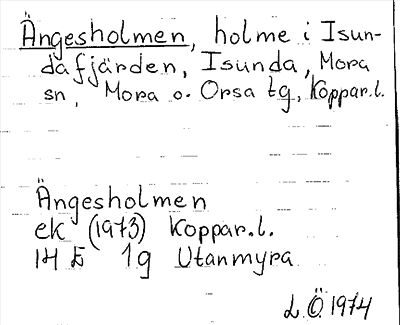 Ängesholmen, holme i Isun-
dafjärden, Isunda, Mora
sn, Mora o. Orsa tg, Koppar.l.
Ängesholmen
ek (1973) Koppar.l.
14 E 1g Utanmyra
L.Ö. 1974